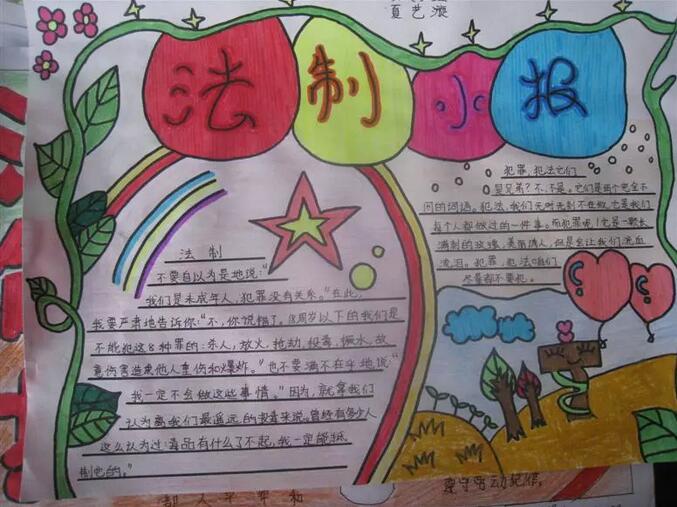 夏艺漩
法制小报
法制
不要自以为是地说:“
我们是未成年人,犯罪没有关系。”在此,
我要严肃地告诉你:“不,你说错了。18周岁以下的我们是
不能犯这8种罪的:杀人,放火,抢劫,投毒,
意伤害造成他人重伤和爆炸。”也不要满不在乎地说:“
我一定不会做这些事情。”因为,就拿我们
认为离我们最遥远的吸毒来说。曾经有多少人
这么认为过:毒品有什么了不起,我一定能抵
制它的。”
犯罪,犯法它们
是兄弟?不,不是。它们是两个完全不
同的词语。犯法,我们无时无刻不在做,它是我们
每个人都做过的一件事。而犯罪呢!它是一颗长
满刺的玫瑰,美丽诱人,但是会让我们流血
流泪。犯罪,犯法,咱们
尽量都不要犯。
遵守劳动纪律,